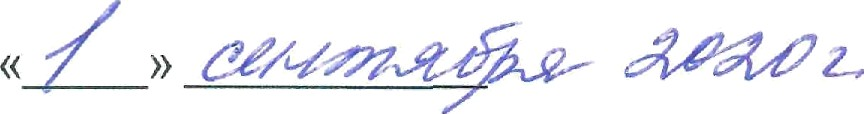 «1» сентября 2020 г.